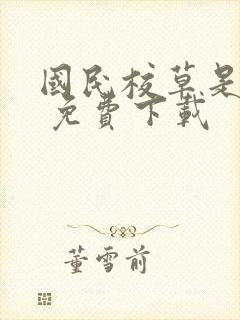 國民校草是
免費下載
董雪前